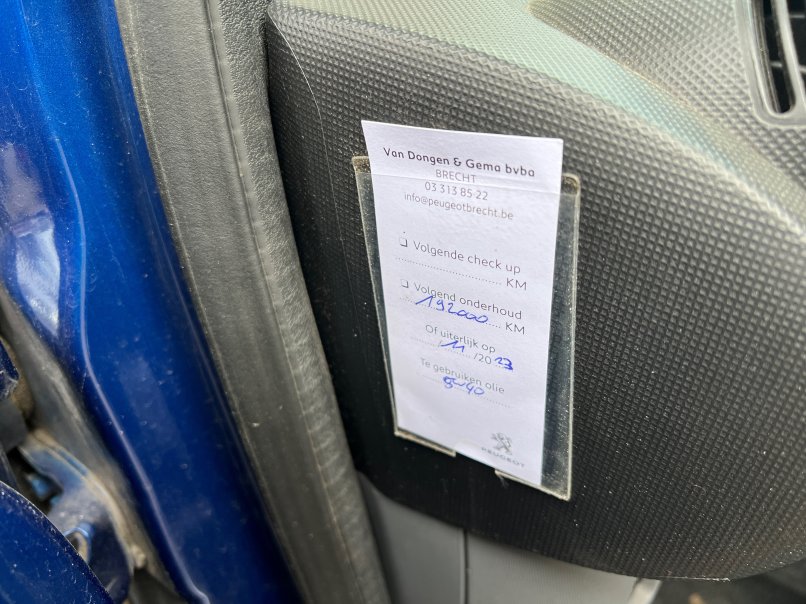 Van Dongen & Gema bvba
BRECHT
03 313 85 22
info@peugeotbrecht.be
❑ Volgende check up
.............................. KM
❑ Volgend onderhoud
192000 KM
Of uiterlijk op
/ 11 /2023
Te gebruiken olie
5w40
PEUGEOT